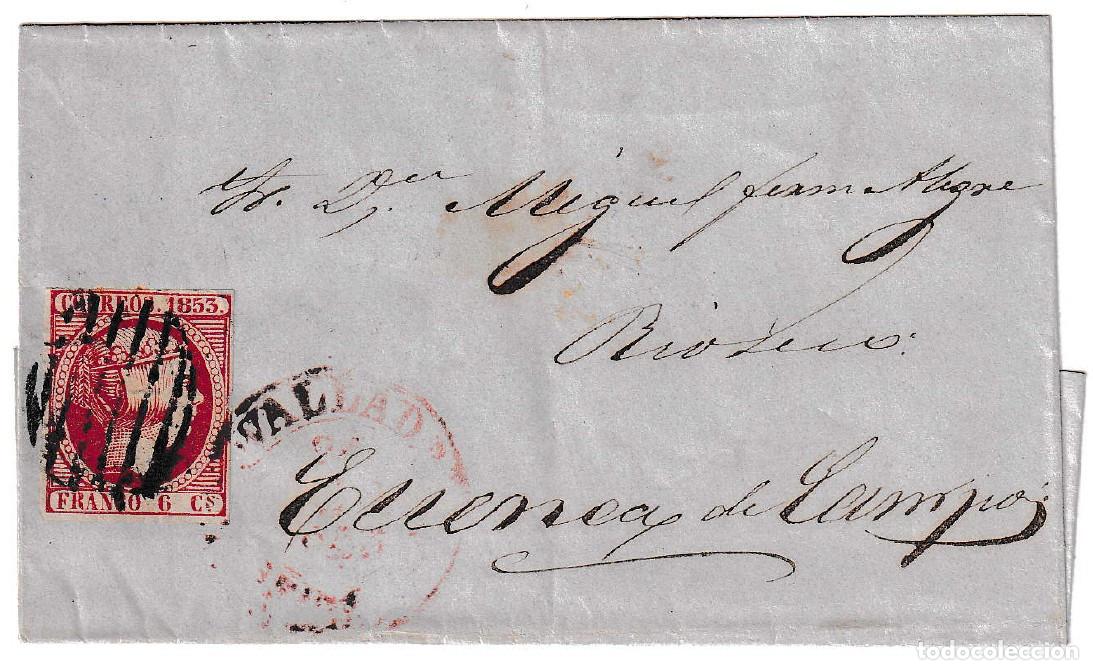 Sr. Dn. Miguel fern Alegre
CORREOS. 1853.
Rioseco.
VALLAD
FRANCO 6 CS
Cuenca de Campos
todocoleccion